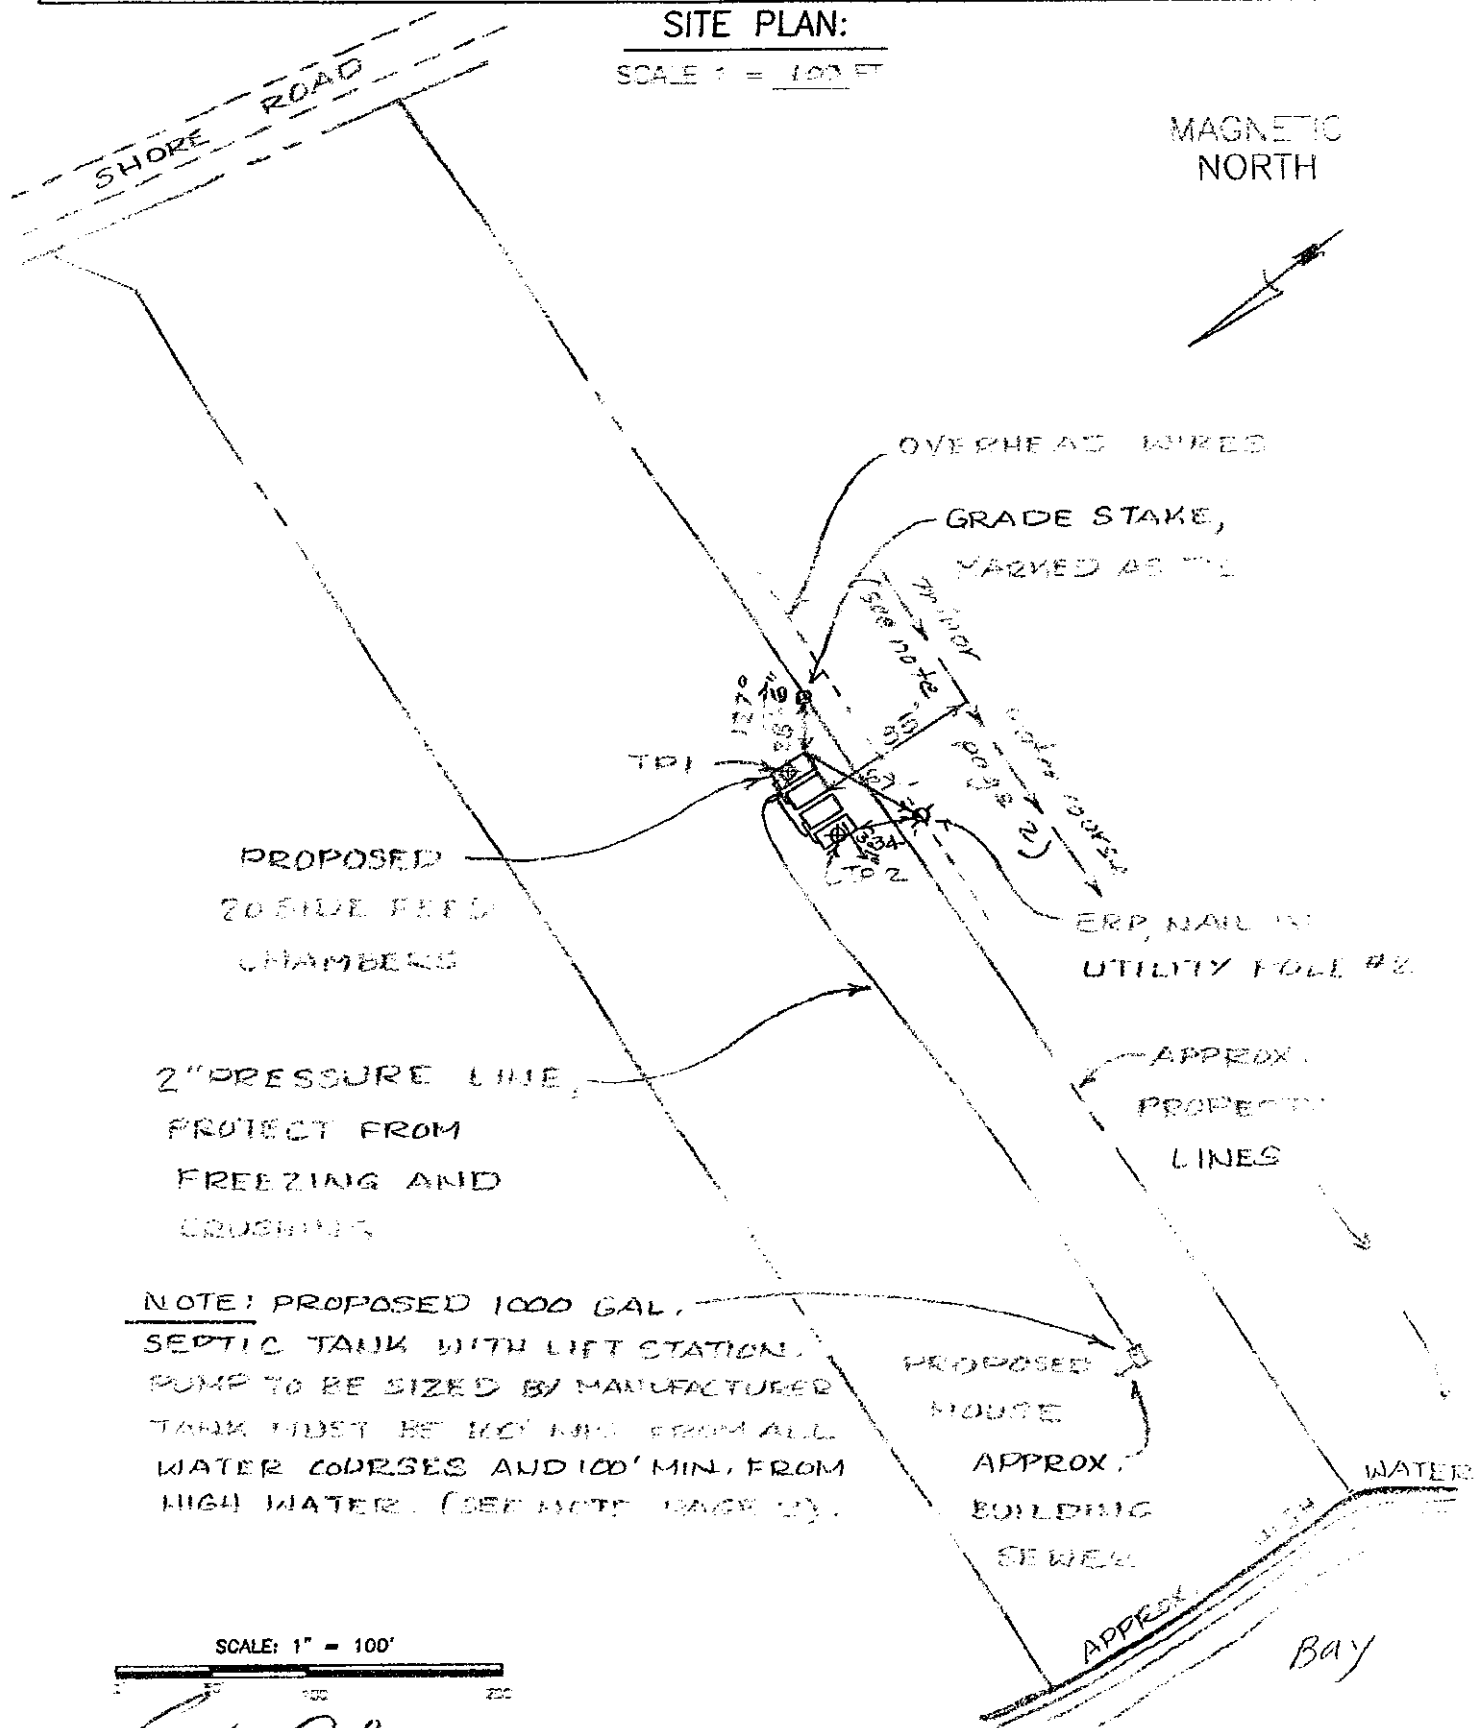 SITE PLAN:
SCALE 1 = 100 FT
SHORE ROAD
MAGNETIC
NORTH
OVERHEAD WIRES
GRADE STAKE,
MARKED AS
minor
(see note
water course
page 2)
127°
TP1
TP 2
PROPOSED
20 SIDE FEED
CHAMBERS
ERP, NAIL IN
UTILITY POLE #2
2" PRESSURE LINE,
PROTECT FROM
FREEZING AND
CRUSHING
APPROX.
PROPERTY
LINES
NOTE: PROPOSED 1000 GAL.
SEPTIC TANK WITH LIFT STATION.
PUMP TO BE SIZED BY MANUFACTURER
TANK MUST BE 100' MIN. FROM ALL
WATER COURSES AND 100' MIN. FROM
HIGH WATER. (SEE NOTE PAGE 2).
PROPOSED
HOUSE
APPROX.
BUILDING
SEWER
APPROX. HIGH WATER
Bay
SCALE: 1" = 100'
100 200